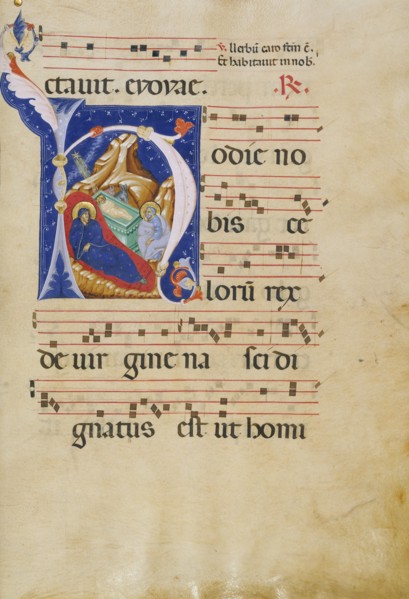 ℣. Verbũ caro fctm ẽ.
Et habitavit in nob.
ctavit. evovae. ℟.
Hodie no
bis ce
lorũ rex
de vir gine na sci di
gnatus est ut homi